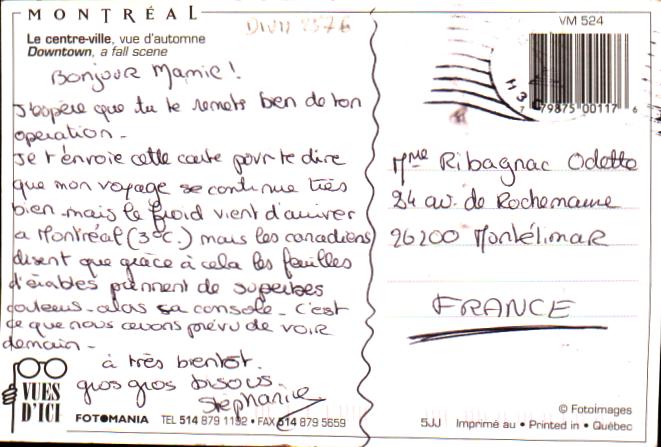 MONTRÉAL
Le centre-ville, vue d'automne
Downtown, a fall scene
VM 524
H3C
7 79875 00117 6
Bonjour Mamie !
J'espère que tu te remets bien de ton
operation -
Je t'envoie cette carte pour te dire
que mon voyage se continue très
bien - mais le froid vient d'arriver
a Montréal (3°C.) mais les canadiens
disent que grâce à cela les feuilles
d'érables prennent de superbes
couleurs - alors sa console - c'est
ce que nous avons prévu de voir
demain -
à très bientot.
gros gros bisous.
Stéphanie
Mme Ribagnac Odette
84 av. de Rochemaure
26200 Montélimar
FRANCE
VUES
D'ICI
FOTOMANIA TEL 514 879 1192 • FAX 514 879 5659
© Fotoimages
5JJ Imprimé au • Printed in • Québec